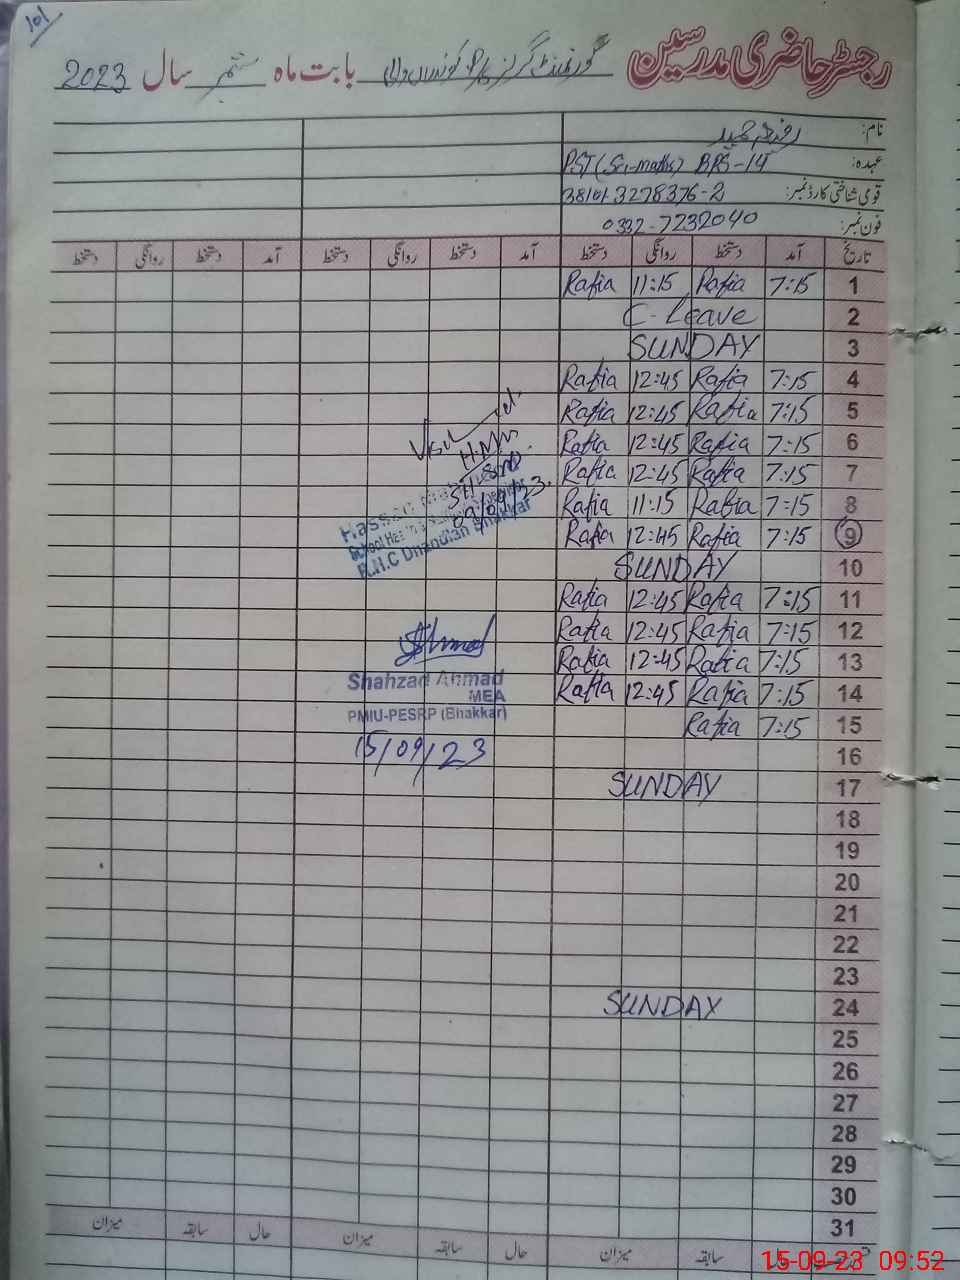 101
رجسٹر حاضری مدرسین گورنمنٹ گرلز بابت ماہ ستمبر سال 2023
نام:
عہدہ: PST (Sci-maths) BPS-14
قومی شناختی کارڈ نمبر: 38101-3278376-2
فون نمبر: 0332-7232040
تاریخ آمد دستخط روانگی دستخط آمد دستخط روانگی دستخط آمد دستخط روانگی دستخط
1 7:15 Rafia 11:15 Rafia
2 C-Leave
3 SUNDAY
4 7:15 Rafia 12:45 Rafia
5 7:15 Rafia 12:45 Rafia
6 7:15 Rafia 12:45 Rafia
7 7:15 Rafia 12:45 Rafia
8 7:15 Rafia 11:15 Rafia
9 7:15 Rafia 12:45 Rafia
10 SUNDAY
11 7:15 Rafia 12:45 Rafia
12 7:15 Rafia 12:45 Rafia
13 7:15 Rafia 12:45 Rafia
14 7:15 Rafia 12:45 Rafia
15 7:15 Rafia
16
17 SUNDAY
18
19
20
21
22
23
24 SUNDAY
25
26
27
28
29
30
31
09/09/23
School Health
R.H.C Bhakkar
Ahmad
Shahzad Ahmad
MEA
PMIU-PESRP (Bhakkar)
15/09/23
سابقہ میزان حال سابقہ میزان حال سابقہ میزان
15-09-23 09:52